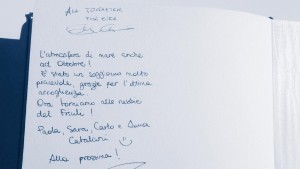 L'atmosfera di mare anche
ad Ottobre!
È stato un soggiorno molto
piacevole, grazie per l'ottima
accoglienza.
Ora torniamo alle nebbie
del Friuli!
Paola, Sara, Carlo e Anna
Catalani
Alla prossima!